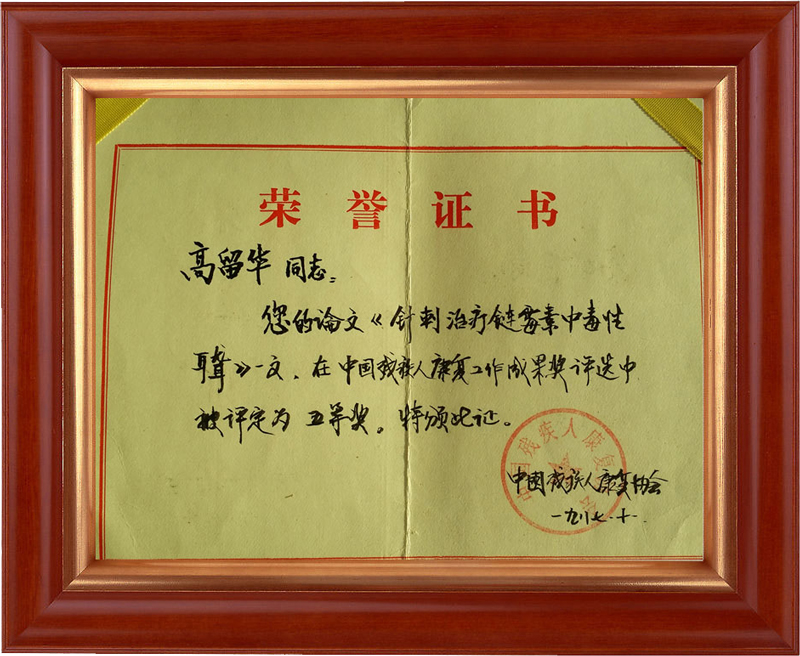 荣誉证书
高留华 同志：
您的论文《针刺治疗链霉素中毒性
耳聋》一文、在中国残疾人康复工作成果奖评选中
被评定为 五等奖。特颁此证。
中国残疾人康复协会
一九八七.十.